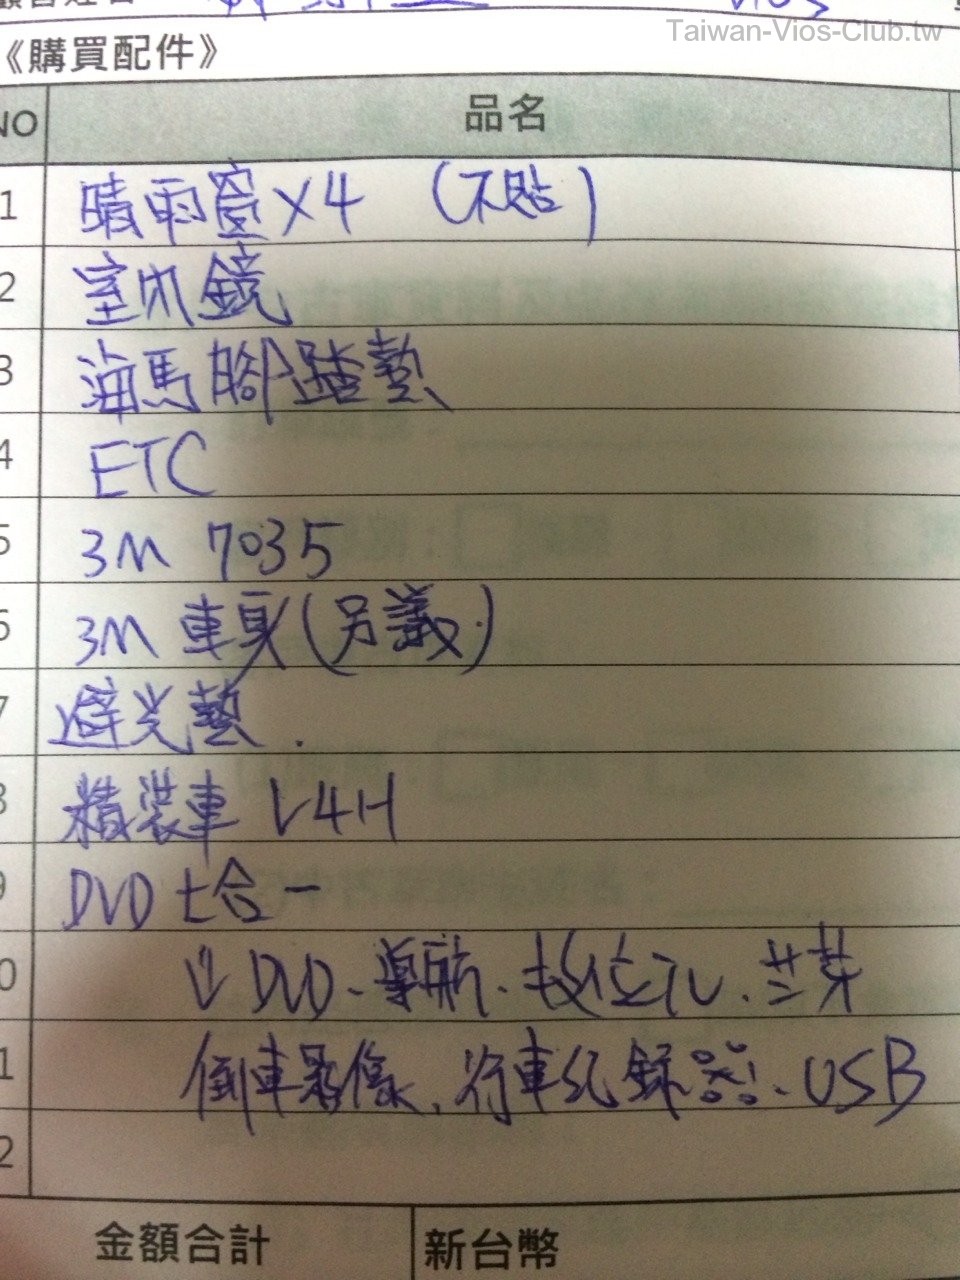 Taiwan-Vios-Club.tw
《購買配件》
NO 品名
1 晴雨窗×4 (不貼)
2 室內鏡
3 海馬腳踏墊
4 ETC
5 3M 7035
6 3M 車身(另議.)
7 避光墊.
8 精裝車 V4H
9 DVD 七合一
0 ⇓ DVD、導航、數位TV、芸芽
1 倒車影像、行車紀錄器、USB
2
金額合計 新台幣